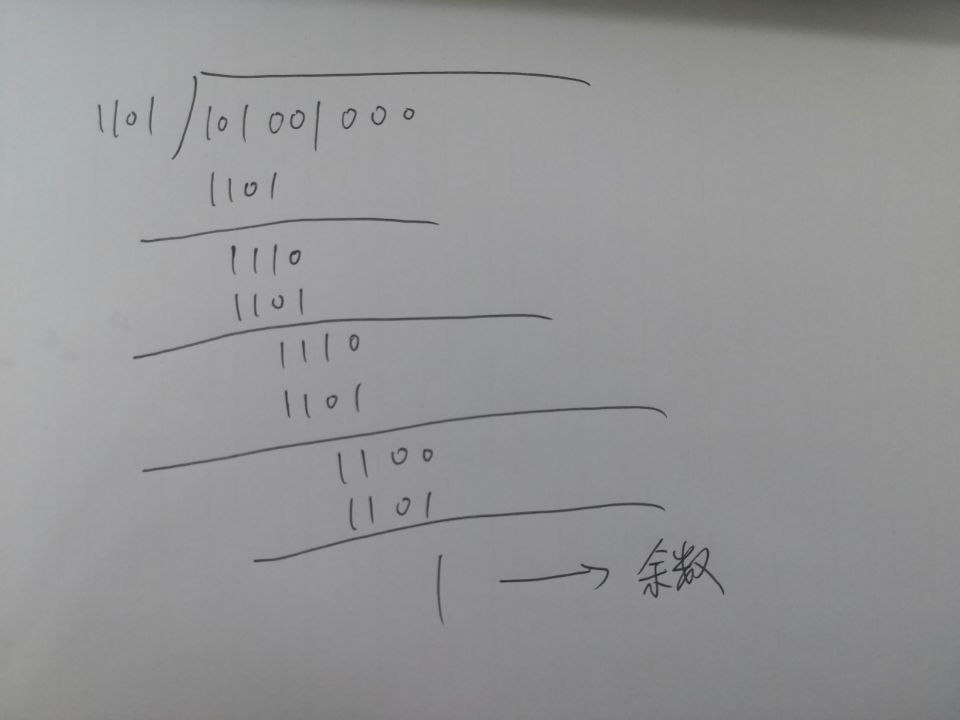 1101 101001000
1101
1110
1101
1110
1101
1100
1101
1 → 余数